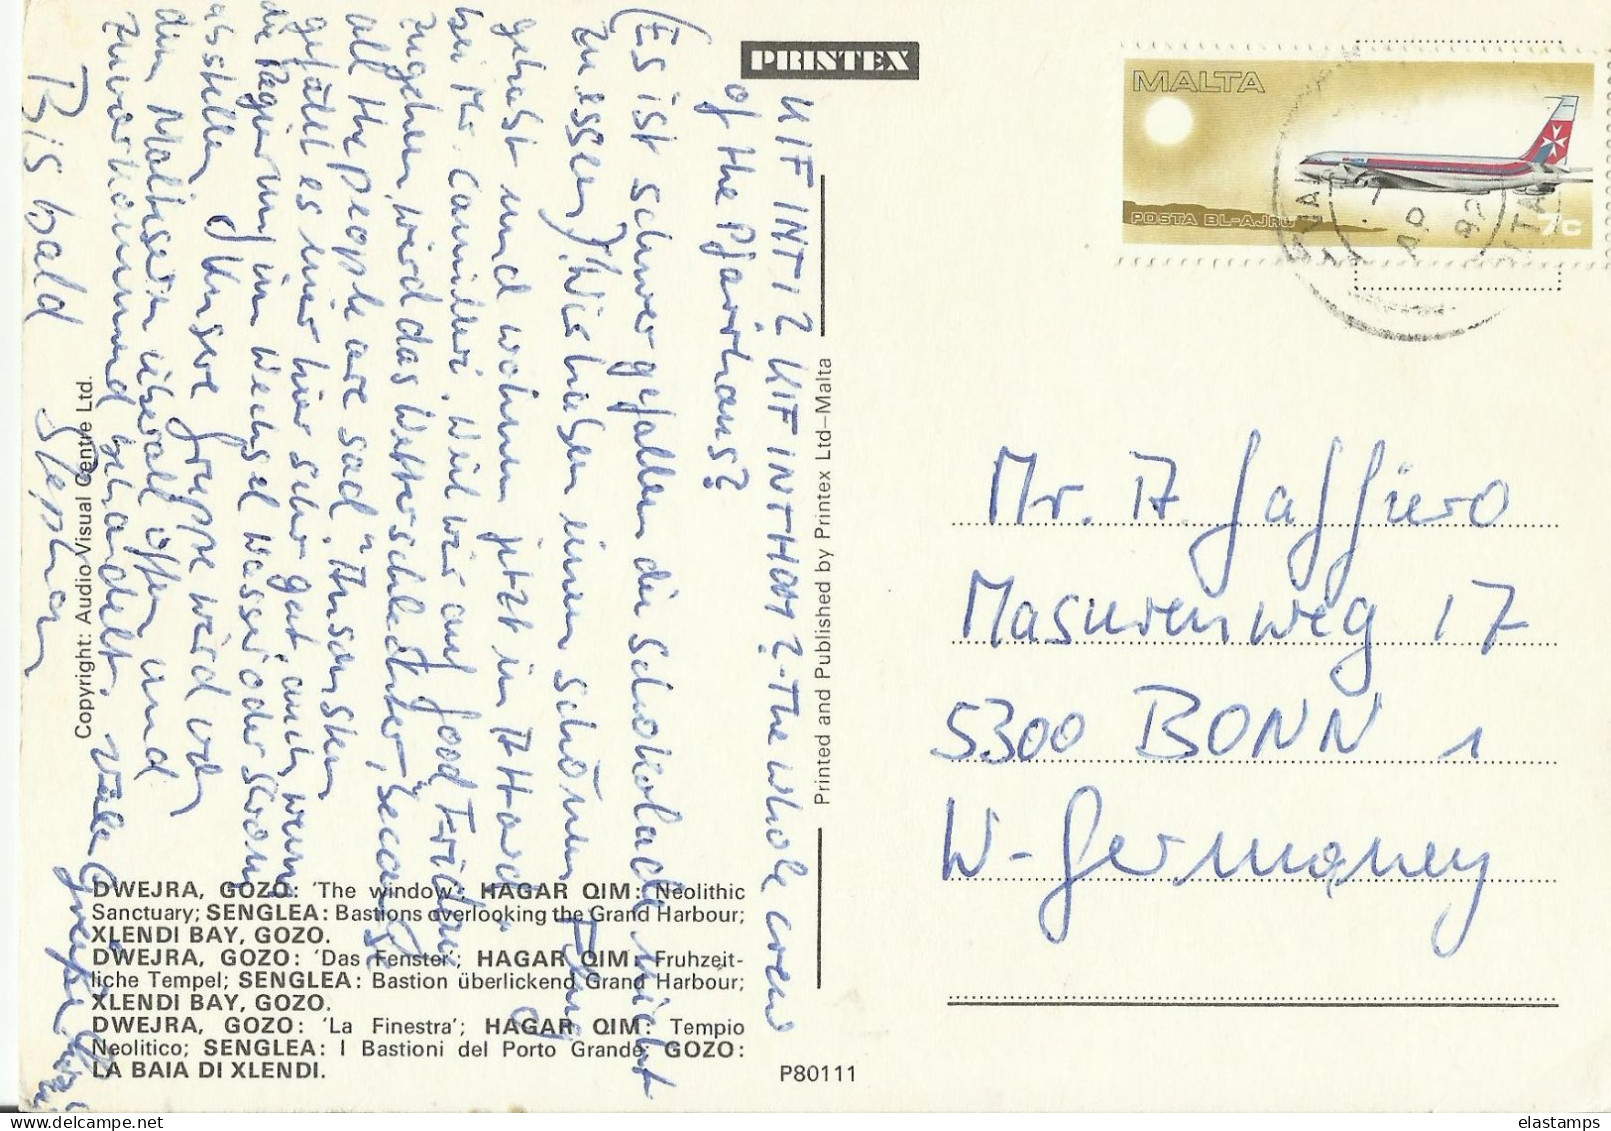 PRINTEX
MALTA
POSTA BL-AJRU
7c
KIF INTI? KIF INTHOM? - The whole crew
of the Pfarrhaus?
(Es ist schwer gefallen die Schokolade nicht
zu essen)! Wir haben einen schönen Flug
gehabt und wohnen jetzt in Attard
bei Mr. Camilleri. Weil wir auf Good Friday
zugehen, wird das Wetter schlechter, "because
all the people are sad". Ansonsten
gefällt es mir hier sehr gut, auch wenn
die Regierung im Wechsel Wasser oder Strom
abstellen. Unsere Gruppe wird von
den Maltesern überall offen und
zuvorkommend behandelt. Viele Grüße
Bis bald Stephan
Mr. A. Gaffiero
Masurenweg 17
5300 BONN 1
W-Germaney
Printed and Published by Printex Ltd–Malta
Copyright: Audio Visual Centre Ltd.
DWEJRA, GOZO: 'The window'; HAGAR QIM: Neolithic
Sanctuary; SENGLEA: Bastions overlooking the Grand Harbour;
XLENDI BAY, GOZO.
DWEJRA, GOZO: 'Das Fenster'; HAGAR QIM: Fruhzeit-
liche Tempel; SENGLEA: Bastion überlickend Grand Harbour;
XLENDI BAY, GOZO.
DWEJRA, GOZO: 'La Finestra'; HAGAR QIM: Tempio
Neolitico; SENGLEA: I Bastioni del Porto Grande; GOZO:
LA BAIA DI XLENDI.
P80111
elastamps